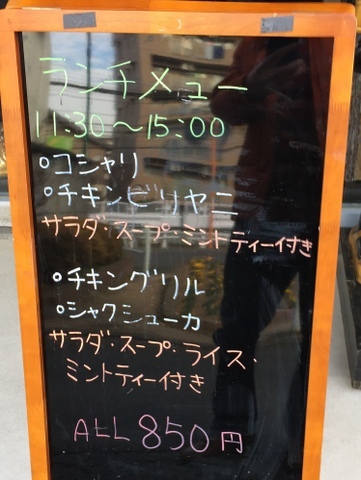 ランチメュー
11:30〜15:00
○コシャリ
○チキンビリヤニ
サラダ・スープ・ミントティー付き
○チキングリル
○シャクシューカ
サラダ・スープ・ライス・
ミントティー付き
ALL 850円